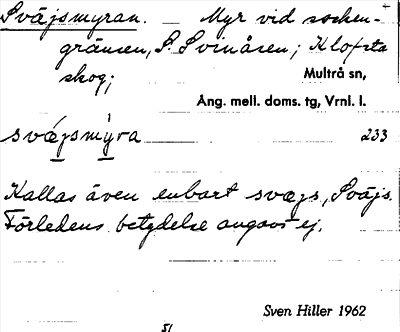 Sväjsmyran. Myr vid socken-
gränsen, S. Svinåsen; Klofsta
skog;
Multrå sn,
Ång. mell. doms. tg, Vrnl. l.
svæjsmýra 233
Kallas även enbart svæjs, Sväjs.
Förledens betydelse angavs ej.
Sven Hiller 1962